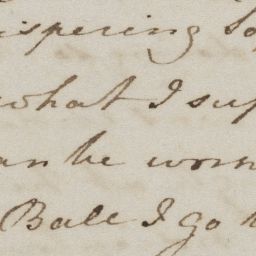 ispering So
what I sup
an be worn
Ball I go